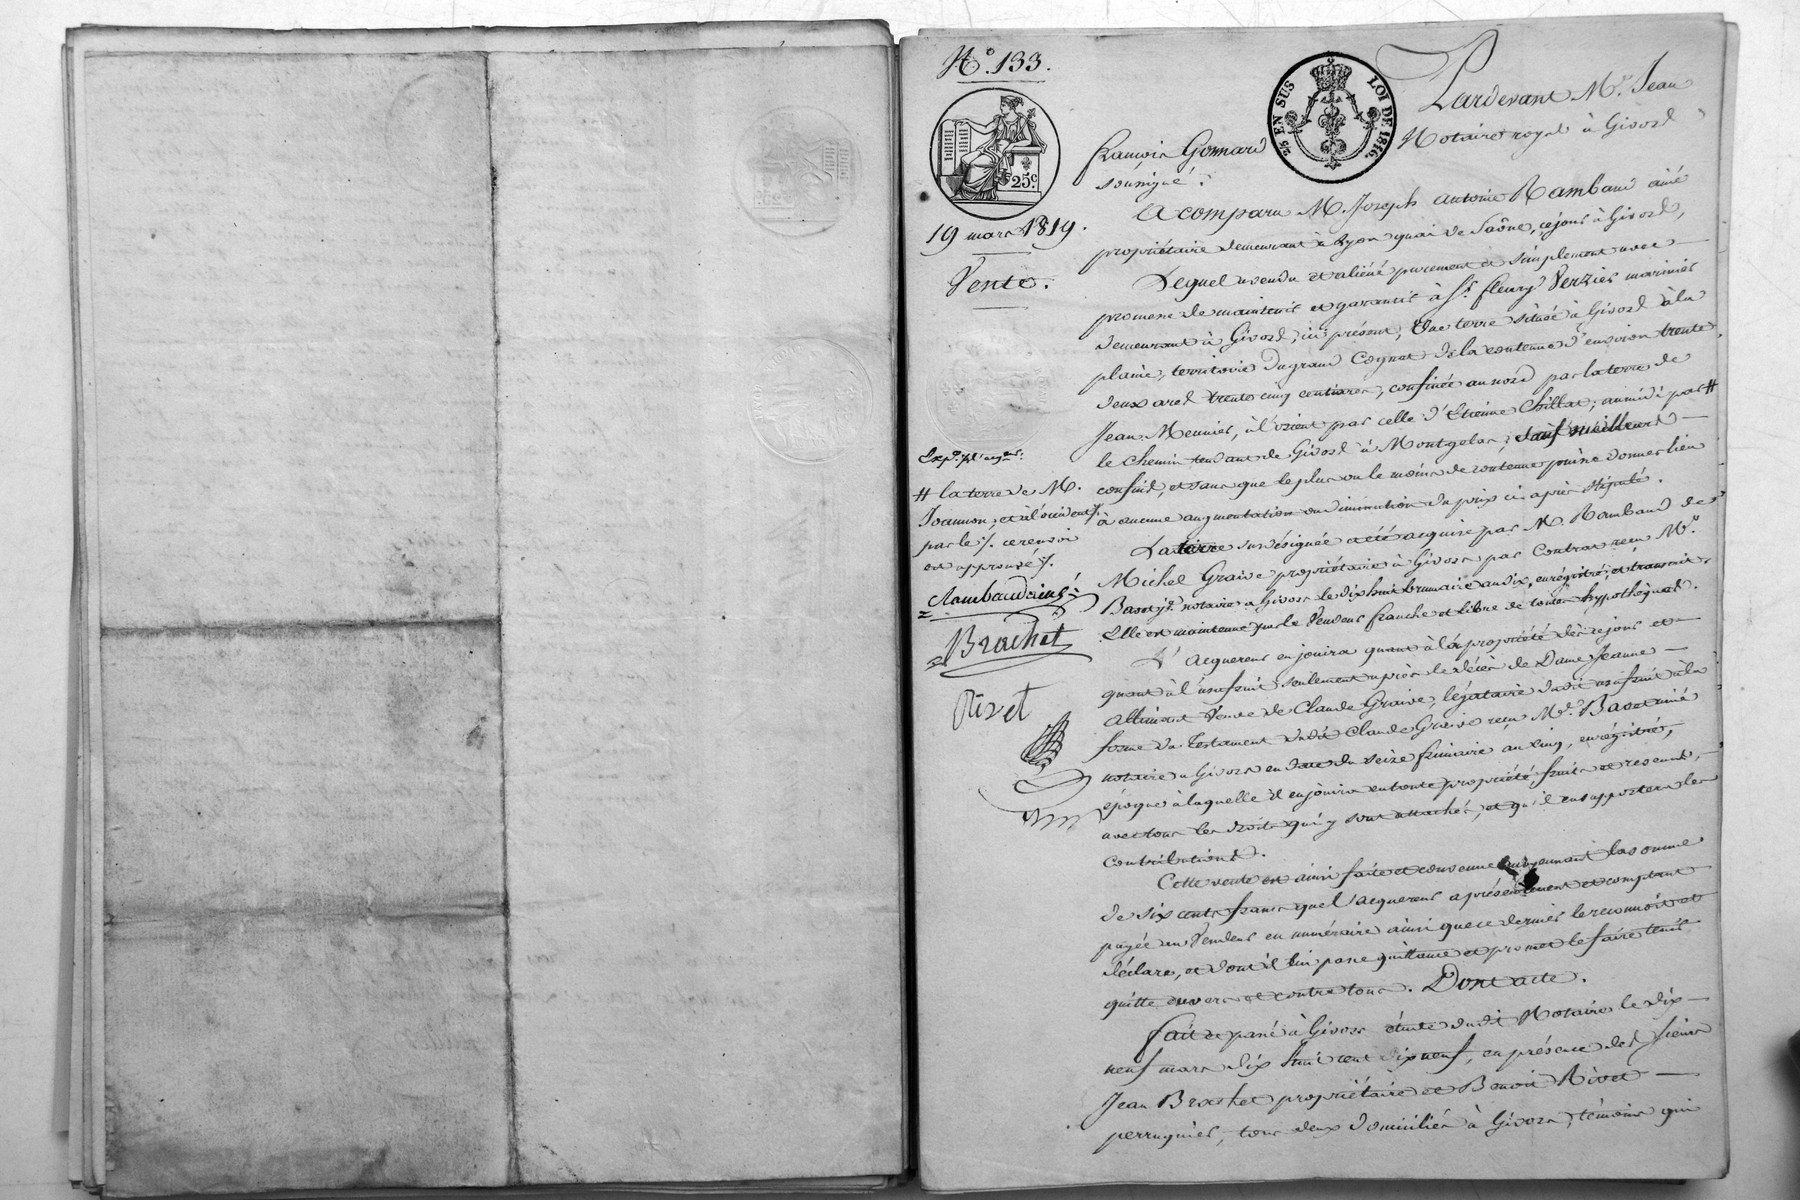 N.° 133.
25 EN SUS
LOI DE 1816.
25.c
19 mars 1819.
Vente.
Pardevant M.e Jean
françois Gonnard Notaire royal à Givors
soussigné.
A comparu M. Joseph Antoine Rambaud ainé
propriétaire demeurant à Lyon quai de Saône, ce jour à Givors,
Lequel a vendu et aliéné purement et simplement avec
promesse de maintenir et garantir à S.r fleury Verzier marinier
demeurant à Givors, ici présent, Une terre située à Givors à la
plaine, territoire du grand Cognet de la contenue d'environ trente
deux ares trente cinq centiares, confinée au nord par la terre de
Jean Meunier, à l'orient par celle d'Etienne Chillet, au midi par #
le chemin tendant de Givors à Montgelas, sauf meilleurs
confins, et sans que le plus ou le moins de contenue puisse donner lieu
à aucune augmentation ou diminution du prix ci après stipulé.
La terre susdésignée a été acquise par M. Rambaud de S.r
Michel Graive propriétaire à Givors par Contrat reçu M.e
Basset j.e notaire à Givors le dix huit brumaire an dix, enrégistré et transcrit.
Elle est maintenue par le Vendeur franche et libre de toutes hypothèques.
L'acquereur en jouira quant à la propriété dès ce jour et
quant à l'usufruit seulement après le décès de Dame Jeanne
Veuve de Claude Graive, légataire dudit usufruit à la
forme du testament dudit Claude Graive reçu M.e Basset ainé
notaire à Givors en date du seize frimaire an cinq, enrégistré,
époque à laquelle il en jouira en toute propriété, fruits et revenus,
avec tous les droits qui y sont attachés, et qu'il en supportera les
Contributions.
Cette vente est ainsi faite et convenue moyennant la somme
de six cents francs que l'acquereur a présentement et comptant
payée au Vendeur en numéraire ainsi que ce dernier le reconnoit et
déclare, et dont il lui passe quittance et promet le faire tenir
quitte envers et contre tous. Dont acte.
fait et passé à Givors étude dudit Notaire le dix
neuf mars dix huit cent dix neuf, en présence des sieurs
Jean Brachet propriétaire et Benoit Rivet
perruquier, tous deux domiciliés à Givors, témoins qui
# la terre de M.
Joannon, et à l'occident
par le /. ce renvoi
est approuvé /.
Rambaud ainé
Brachet
Rivet